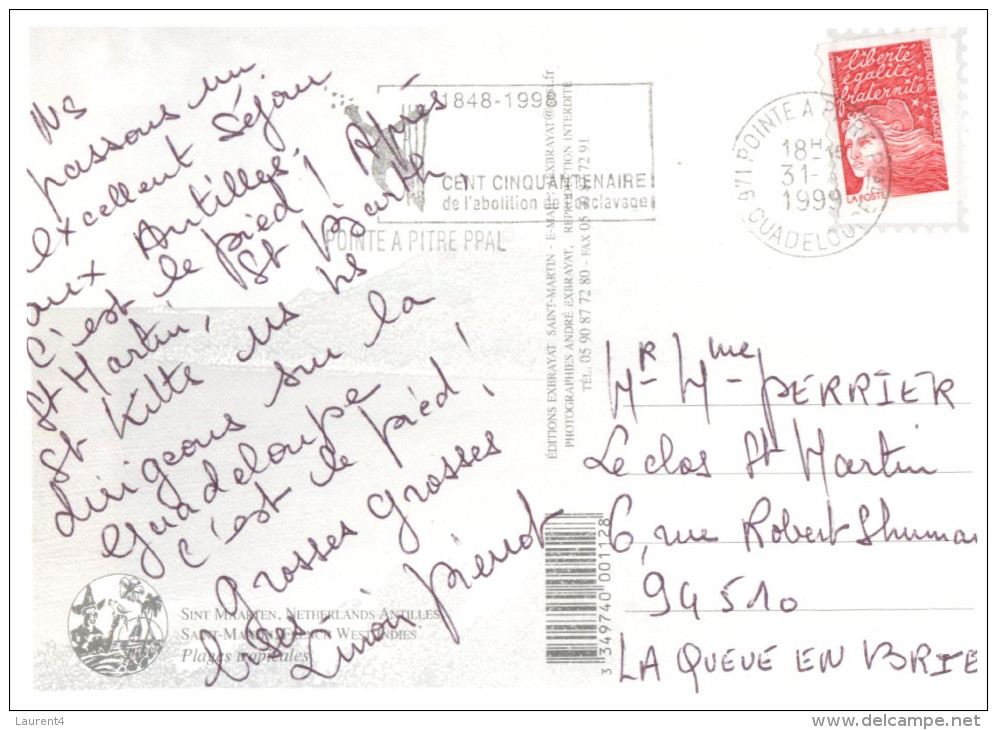 Ns
passons un
excellent Séjour
aux Antilles,
c'est le pied! Après
St Martin, St Barth,
St Kitts ns ns
dirigeons sur la
Guadeloupe
c'est le pied!
Grosses Grosses
1848-1998
CENT CINQUANTENAIRE
de l'abolition de l'esclavage
POINTE A PITRE PPAL
971 POINTE A PITRE PPAL
18H
31-
1999
GUADELOUPE
liberté
égalité
fraternité
RÉPUBLIQUE FRANÇAISE
LA POSTE
ÉDITIONS EXBRAYAT SAINT-MARTIN - E-MAIL: EXBRAYAT@
PHOTOGRAPHIES ANDRÉ EXBRAYAT, REPRODUCTION INTERDITE
TÉL. 05 90 87 72 80 - FAX 05 90 87 72 91
Mr Mme PERRIER
Le clos St Martin
6, rue Robert Shuman
94510
LA QUEUE EN BRIE
3 349740 001128
SINT MAARTEN, NETHERLANDS ANTILLES
SAINT-MARTIN, FRENCH WEST INDIES
Plages tropicales
Laurent4
www.delcampe.net